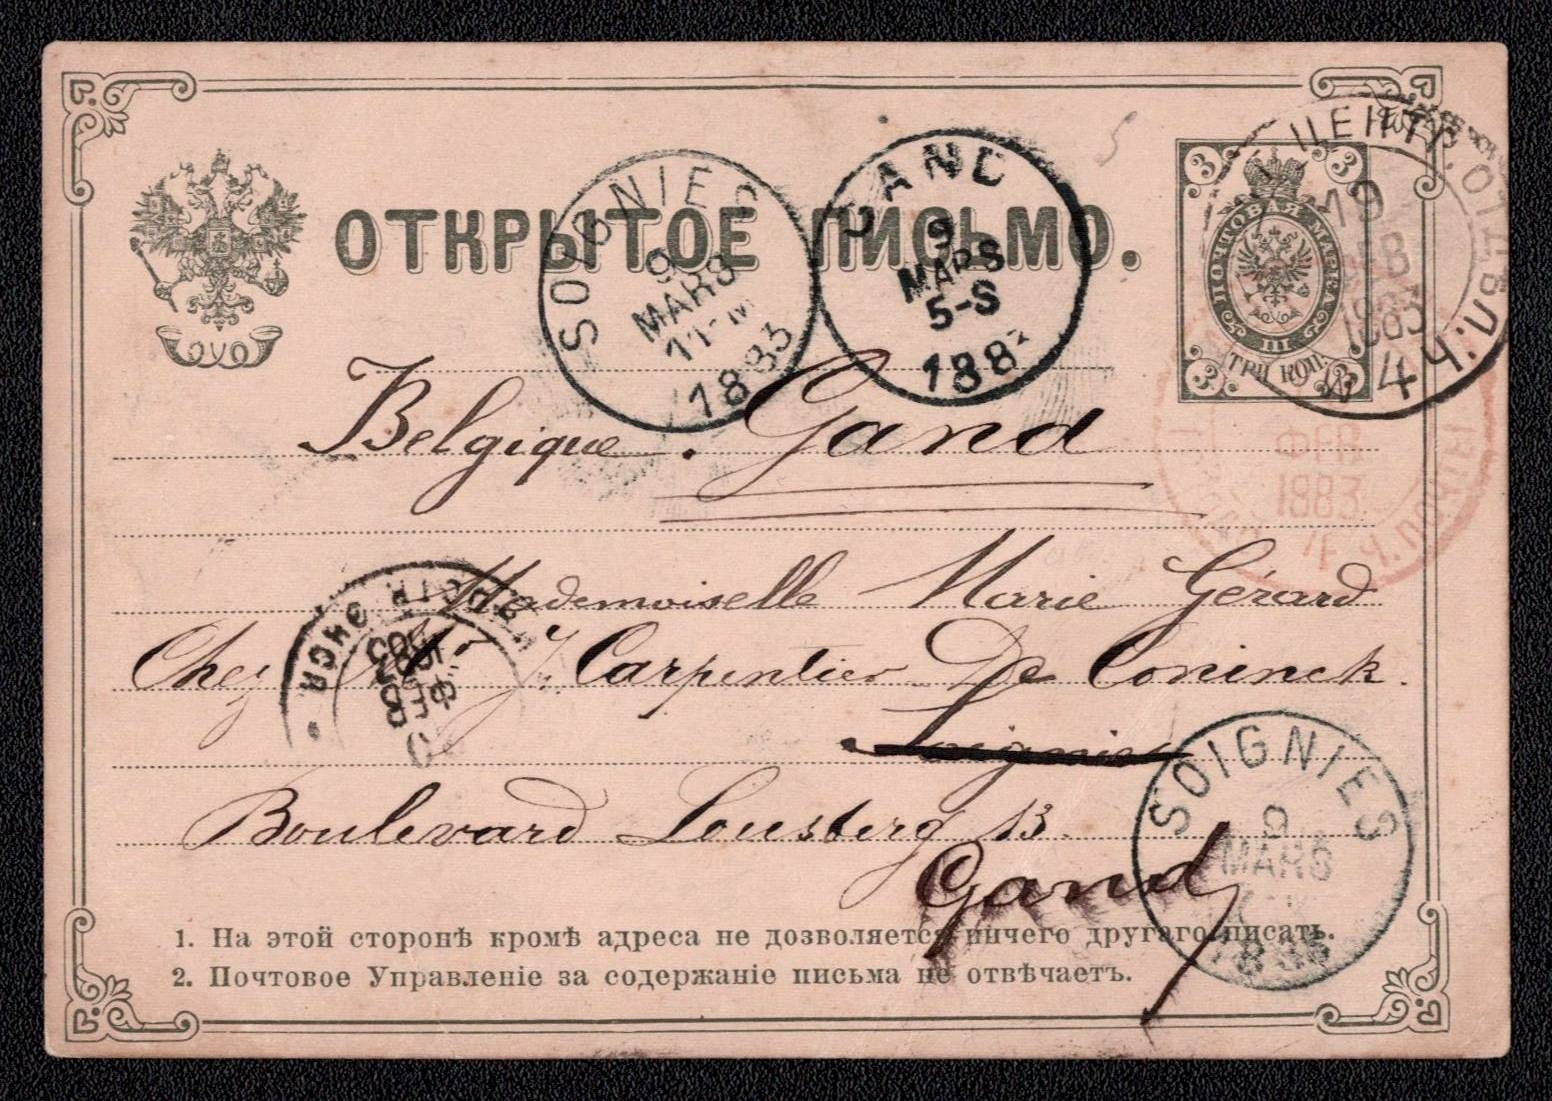 ОТКРЫТОЕ ПИСЬМО.
SOIGNIES
9
MARS
1883
GAND
9
MARS
5-S
188
3 3
ПОЧТОВАЯ МАРКА
III
ТРИ КОП.
3 3
ЦЕНТР. ОТДѢЛ.
19
ФЕВ
1883
4
ФЕВ
1883
Belgique. Gand
Mademoiselle Marie Gérard
Chez Mr J. Carpentier De Coninck.
Soignies
Boulevard Lousberg 13.
Gand
ФЕВ
SOIGNIES
9
MARS
1. На этой сторонѣ кромѣ адреса не дозволяется ничего другаго писать.
2. Почтовое Управленіе за содержаніе письма не отвѣчаетъ.